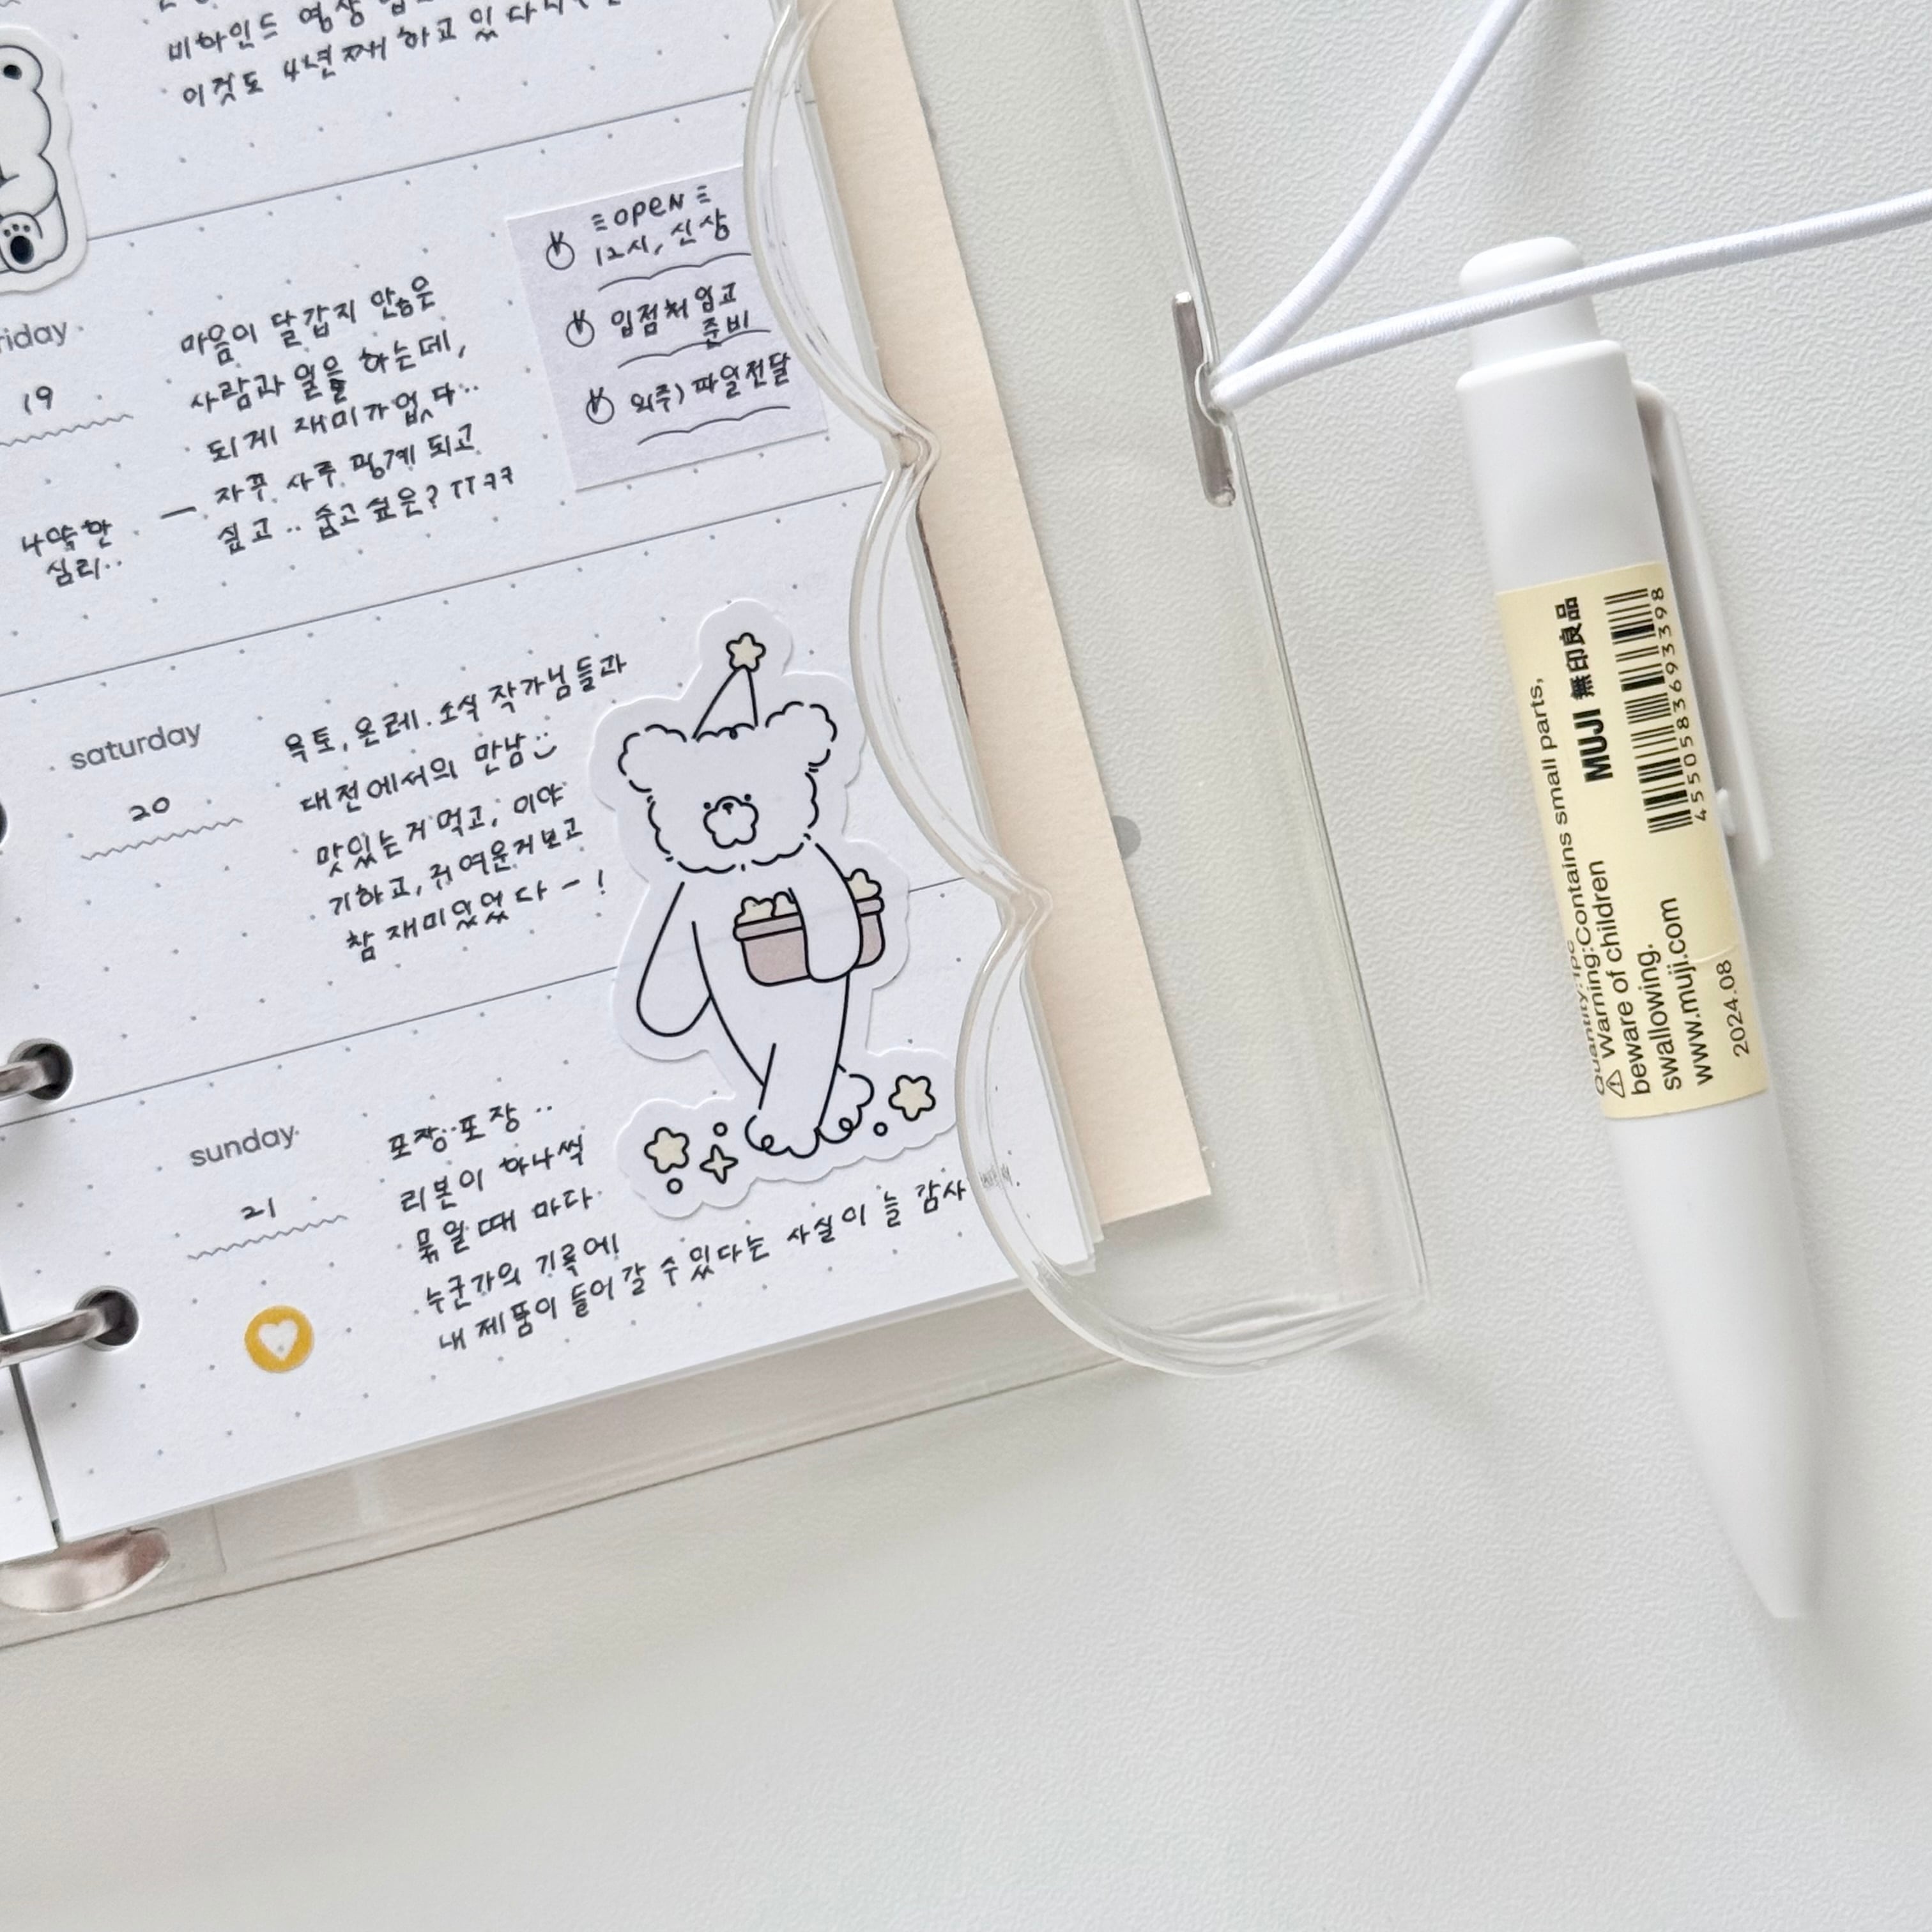 비하인드 영상
이것도 4년째 하고 있다
riday
19
나약한
심리..
마음이 달갑지 않은
사람과 일을 하는데,
되게 재미가 없다..
— 자꾸 사주 핑계 되고
싶고.. 줍고 싶은? ㅠㅋㅋ
open
12시, 신상
입점처 업고
준비
외주) 파일전달
saturday
20
욕토, 온레. 소식 작가님들과
대전에서의 만남:)
맛있는거 먹고, 이야
기하고, 귀여운거 보고
참 재미있었다ー!
sunday
21
포장..포장..
리본이 하나씩
묶일 때 마다
누군가의 기록에!
내 제품이 들어갈 수 있다는 사실이 늘 감사
Quantity:1pc
⚠ Warning:Contains small parts,
beware of children
swallowing.
www.muji.com
2024.08
MUJI 無印良品
4550583693398